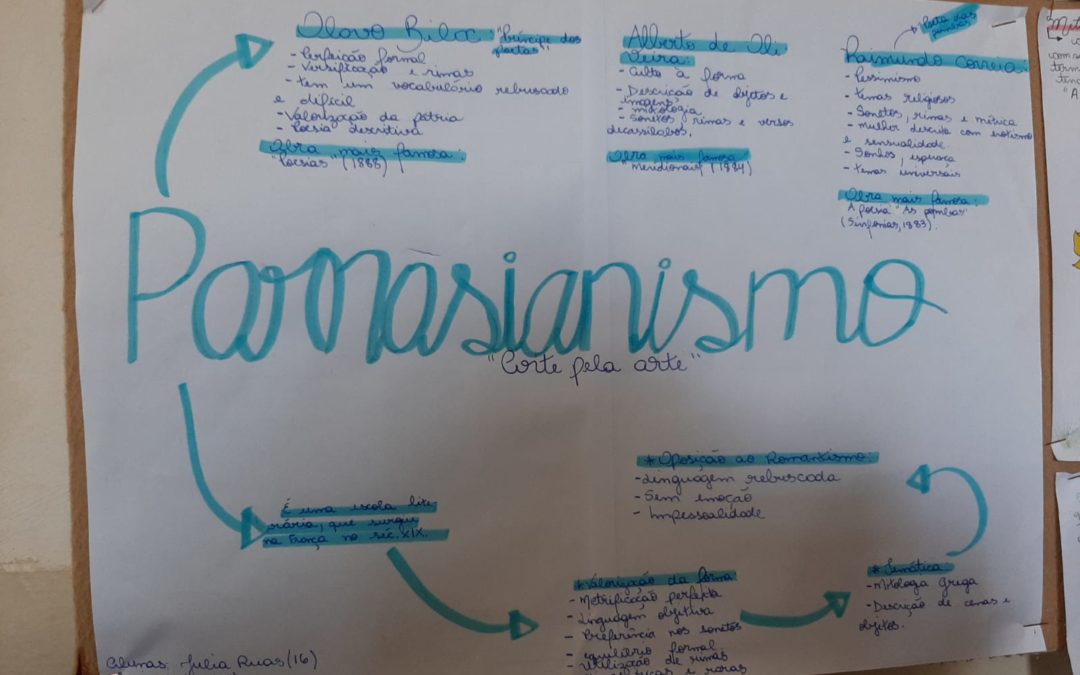 Olavo Bilac: "Príncipe dos
poetas"
- Perfeição formal
- Versificação e rimas
- tem um vocabulário rebuscado
e difícil
- Valorização da pátria
- Poesia descritiva
Obra mais famosa:
"Poesias" (1888)
Alberto de Oli
veira:
- Culto à forma
- Descrição de objetos e
imagens,
- mitologia
- Sonetos, rimas e versos
decassílabos,
Obra mais famosa
meridionais (1884)
Poeta das
pombas
Raimundo Correia:
- Pessimismo
- temas religiosos
- Sonetos, rimas e métrica
- mulher descrita com erotismo
e sensualidade.
- Sonhos, esperança
- temas universais
Obra mais famosa:
A poesia "As pombas"
(Sinfonias, 1883).
Parnasianismo
"Arte pela arte"
É uma escola lite
rária, que surgiu
na França no séc. XIX.
* Oposição ao Romantismo:
- Linguagem rebuscada
- Sem emoção
- Impessoalidade
* Valorização da forma
- Metrificação perfeita
- Linguagem objetiva
- Preferência nos sonetos
- equilíbrio formal
- Utilização de rimas
e raras
* Temática:
- Mitologa grega
- Descrição de cenas e
objetos.
Alunas: Julia Ruas (16)